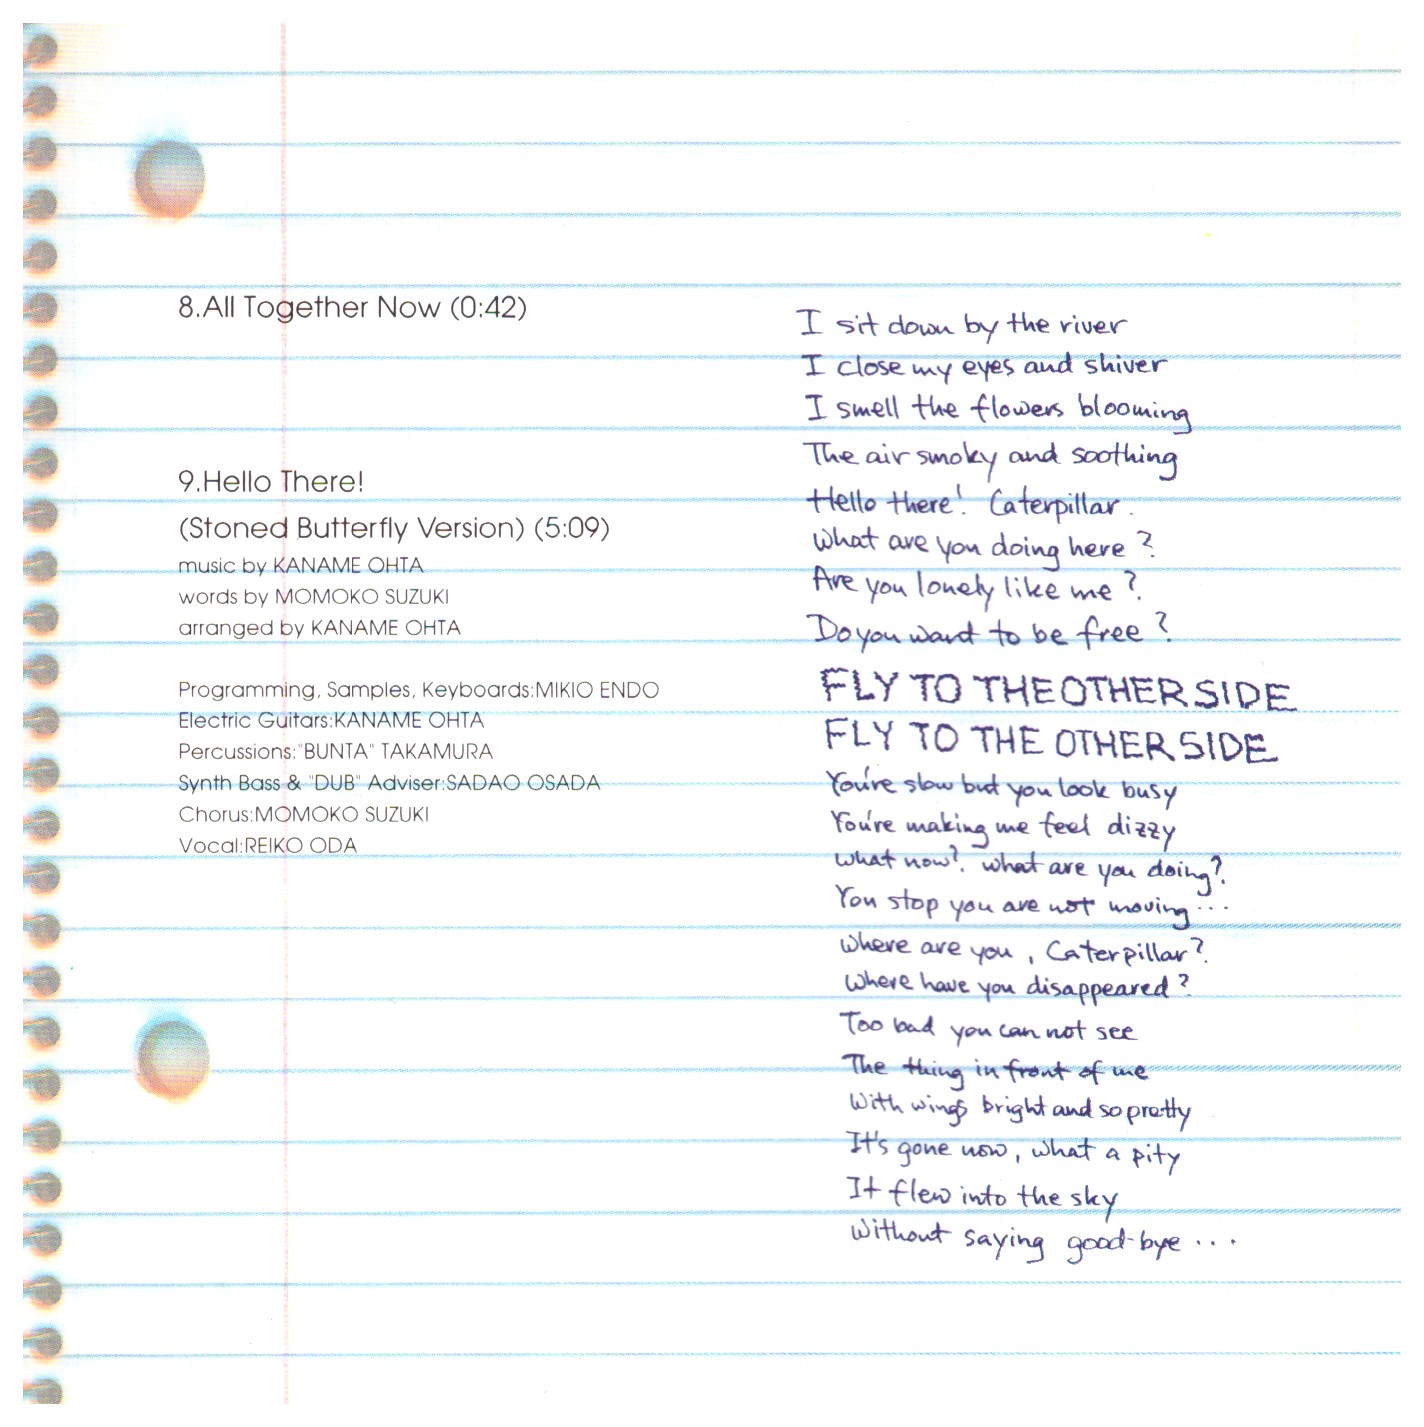 8.All Together Now (0:42)
9.Hello There!
(Stoned Butterfly Version) (5:09)
music by KANAME OHTA
words by MOMOKO SUZUKI
arranged by KANAME OHTA
Programming, Samples, Keyboards:MIKIO ENDO
Electric Guitars:KANAME OHTA
Percussions:"BUNTA" TAKAMURA
Synth Bass & "DUB" Adviser:SADAO OSADA
Chorus:MOMOKO SUZUKI
Vocal:REIKO ODA
I sit down by the river
I close my eyes and shiver
I smell the flowers blooming
The air smoky and soothing
Hello there! Caterpillar.
What are you doing here?
Are you lonely like me?
Do you want to be free?
FLY TO THE OTHER SIDE
FLY TO THE OTHER SIDE
You're slow but you look busy
You're making me feel dizzy
What now? what are you doing?
You stop you are not moving...
Where are you, Caterpillar?
Where have you disappeared?
Too bad you can not see
The thing in front of me
With wings bright and so pretty
It's gone now, what a pity
It flew into the sky
Without saying good-bye...